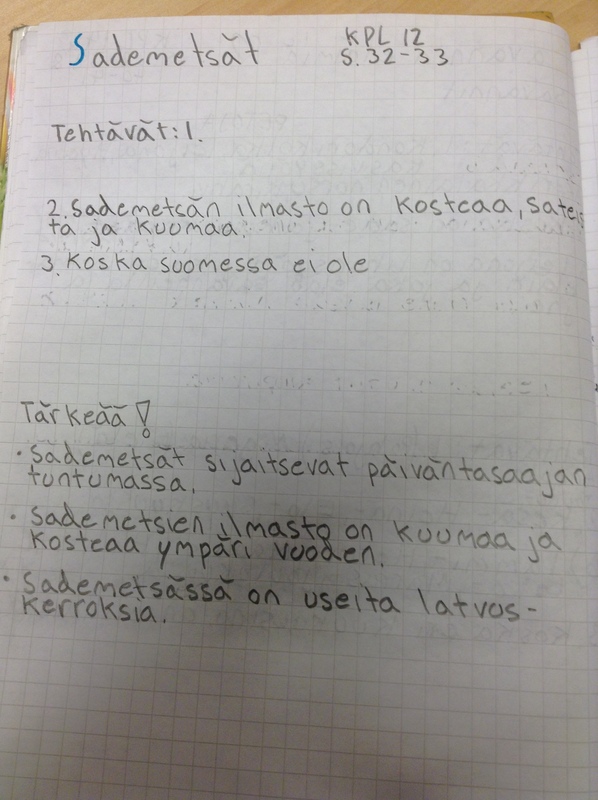 Sademetsät
KPL 12
S. 32-33
Tehtävät: 1.
2. Sademetsän ilmasto on kosteaa, sateis
ta ja kuumaa.
3. Koska suomessa ei ole
Tärkeää!
• Sademetsät sijaitsevat päiväntasaajan
tuntumassa.
• Sademetsien ilmasto on kuumaa ja
kosteaa ympäri vuoden.
• Sademetsässä on useita latvus-
kerroksia.